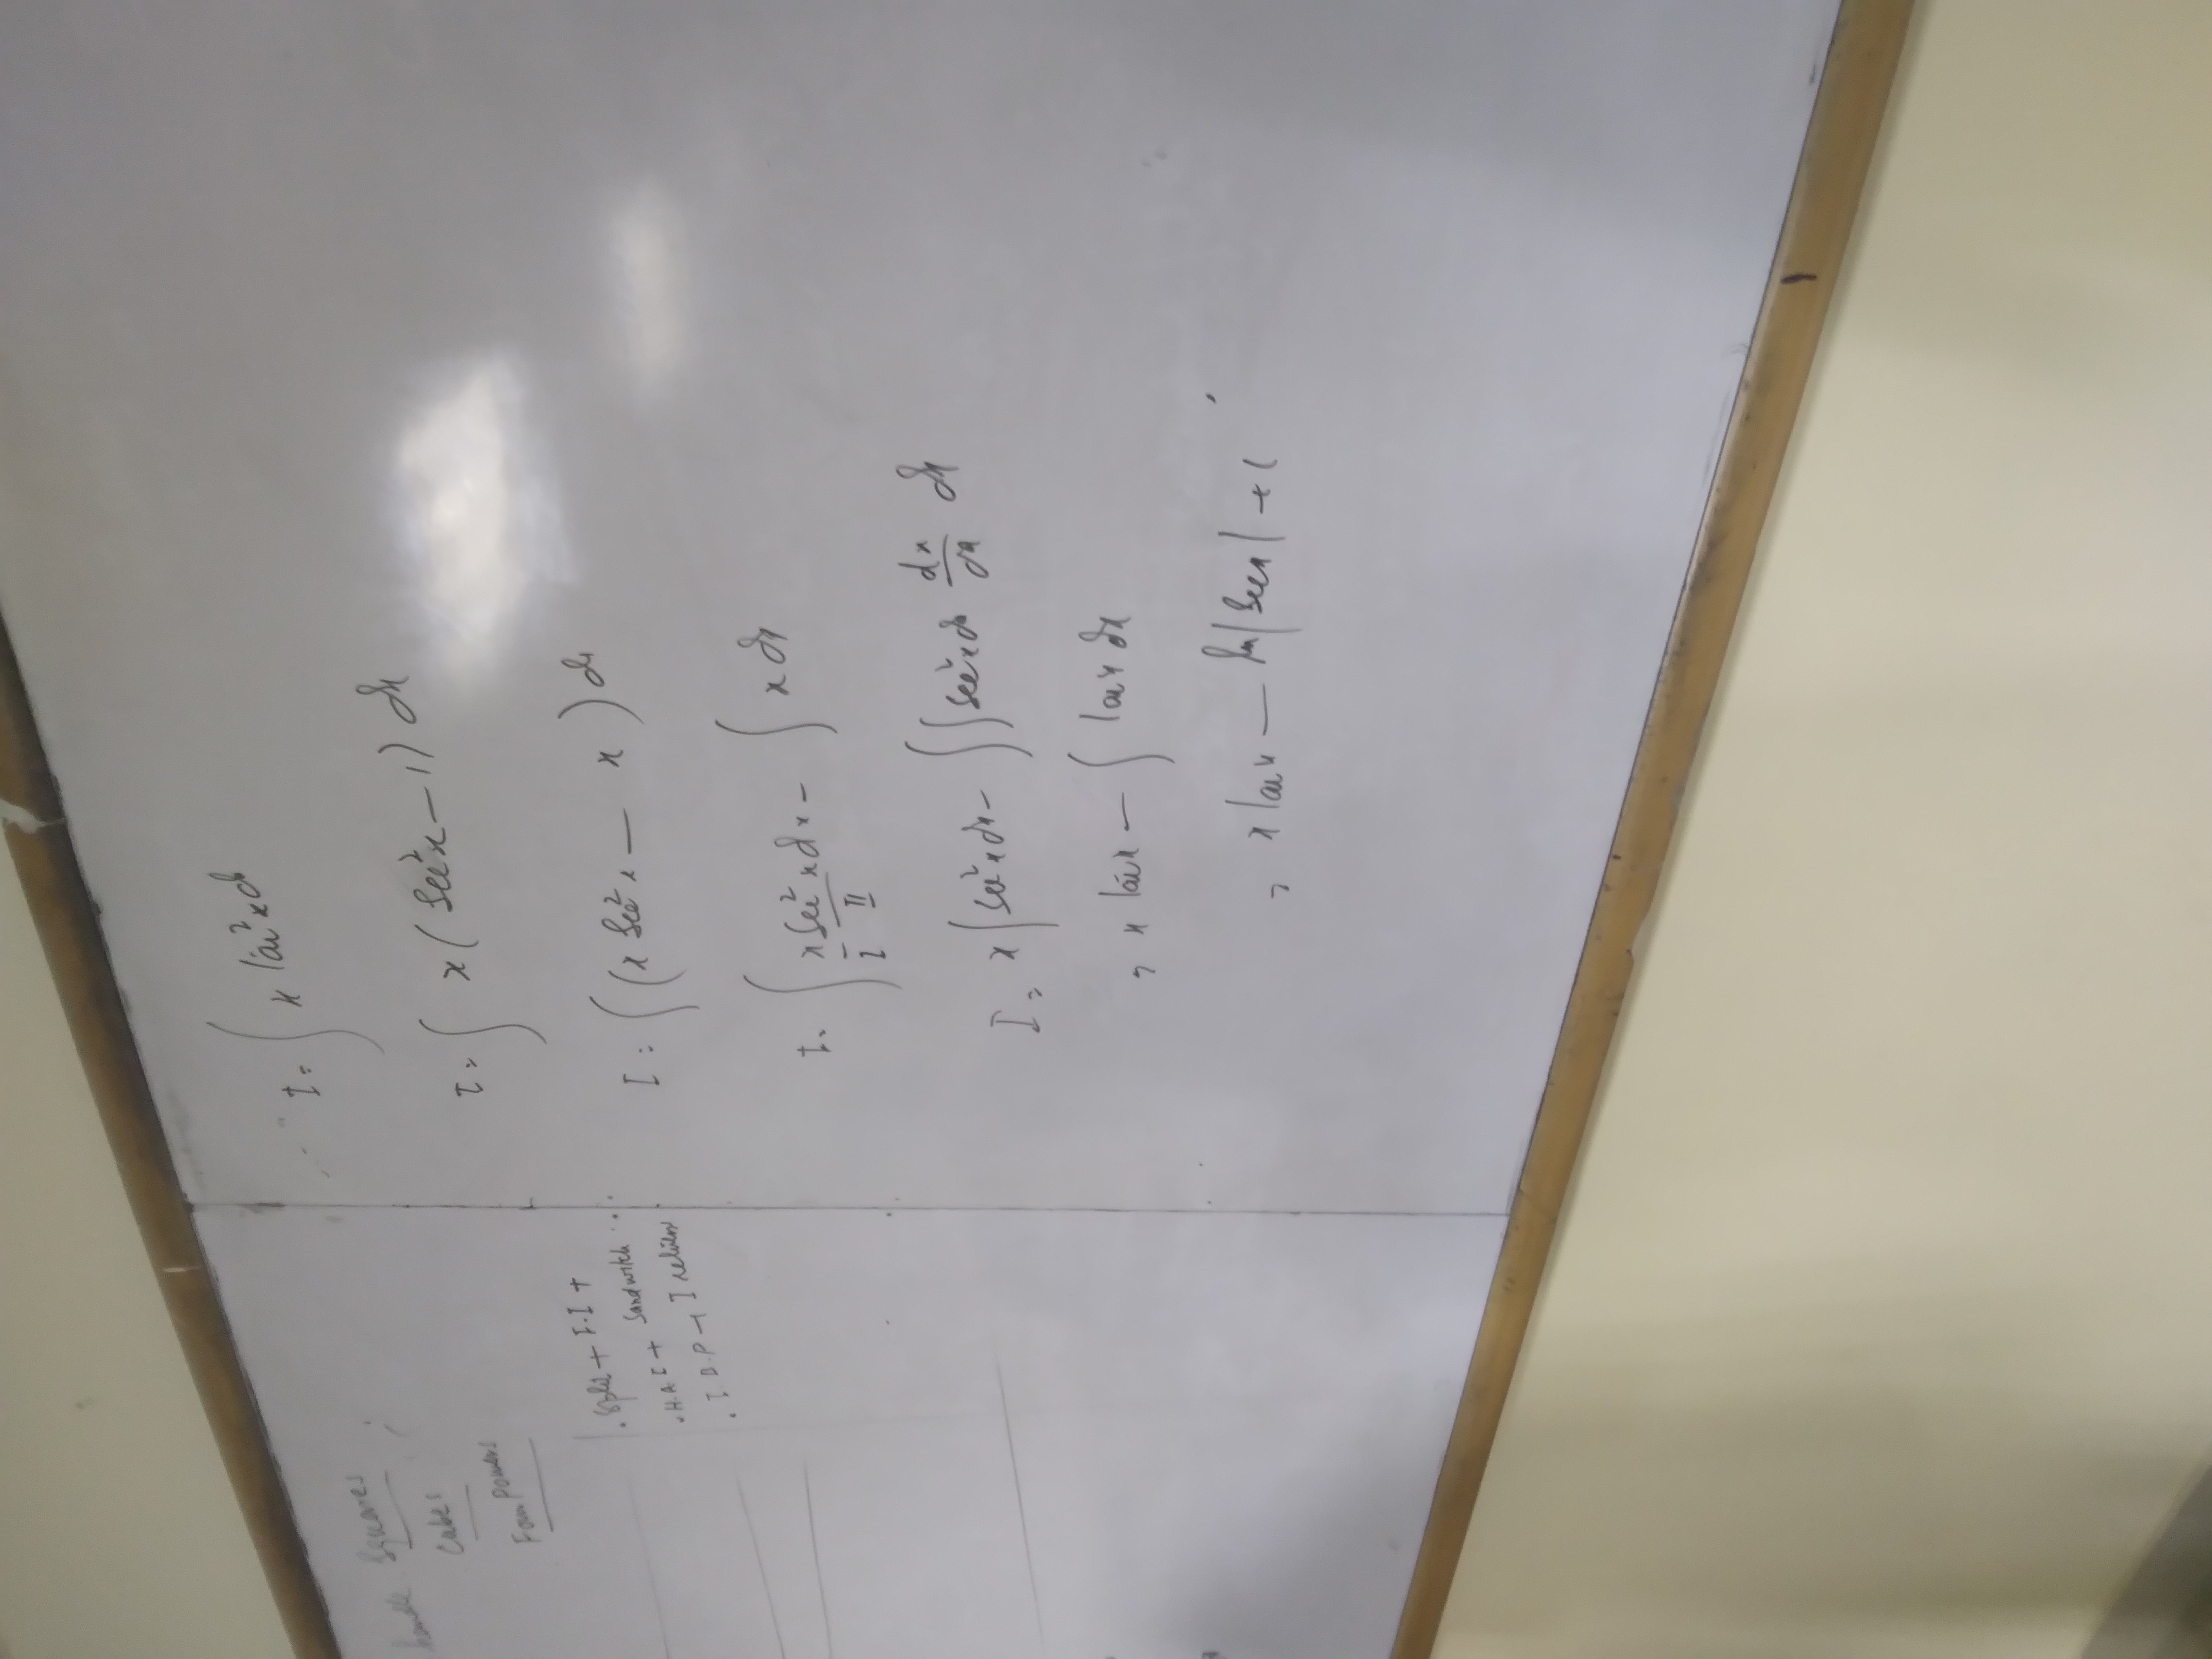 handle Squares
Cubes
Four Powers
. Split + I.I +
. H.A.I + Sandwitch
. I.B.P → I returns
I = ∫ x tan²x dx
I = ∫ x (Sec²x − 1) dx
I = ∫ (x Sec²x − x) dx
I = ∫ x Sec²x dx − ∫ x dx
I II
I = x ∫ Sec²x dx − ∫∫ Sec²x dx dx/dx dx
= x tanx − ∫ tanx dx
= x tanx − ln|Secx| + C